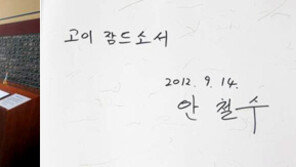 고이 잠드소서
2012. 9. 14.
안 철 수